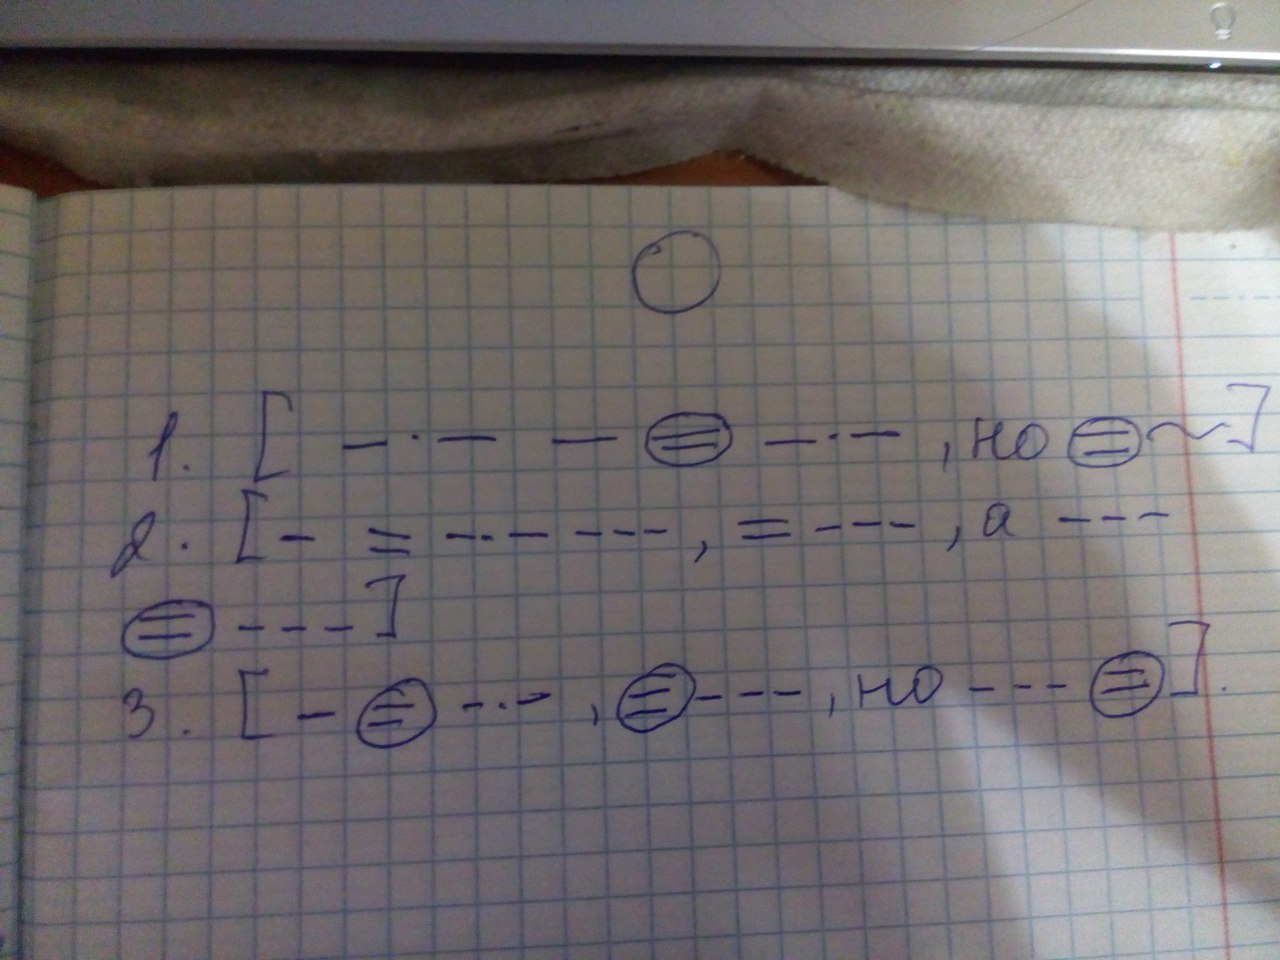 1. [ —·— — (=) —·— , но (=) ~ ]
2. [ — = —·— --- , = --- , а ---
(=) ---- ]
3. [ — (=) -·- , (=) --- , но --- (=) ] .